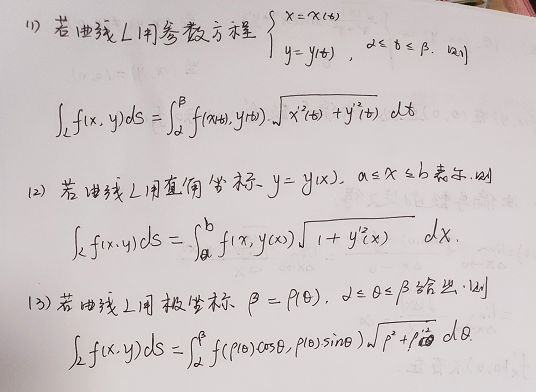 (1) 若曲线L用参数方程 { x=x(t)
y=y(t), α≤t≤β. 则
∫_L f(x,y)ds = ∫_α^β f(x(t),y(t)) √(x'²(t)+y'²(t)) dt
(2) 若曲线L用直角坐标 y=y(x), a≤x≤b 表示.则
∫_L f(x,y)ds = ∫_a^b f(x,y(x)) √(1+y'²(x)) dx.
(3) 若曲线L用极坐标 β=ρ(θ), α≤θ≤β 给出.则
∫_L f(x,y)ds = ∫_α^β f(ρ(θ)cosθ, ρ(θ)sinθ) √(ρ²+ρ'²) dθ.